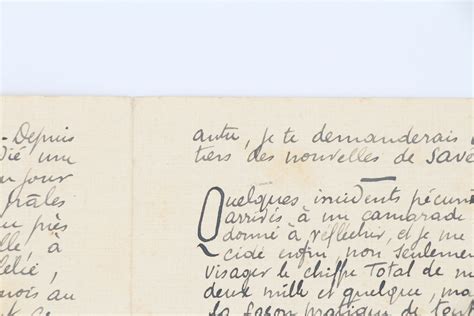 - Depuis
dié une
jour
près
à
mois au
autre, je te demanderais
tiers des nouvelles de Save
Quelques incidents pécun
arrivés à un camarade
donné à réfléchir, et je me
cidé enfin, non seulemen
visager le chiffre total de m
deux mille et quelque, ma
la façon pratique de tout